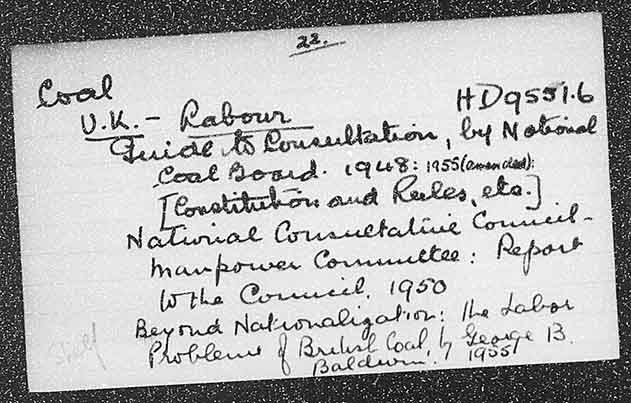 22.
Coal
U.K. - Labour HD9551.6
Guide to Consultation, by National
Coal Board. 1948: 1955 (amended);
[Constitution and Rules, etc.]
National Consultative Council -
Manpower Committee: Report
to the Council. 1950
Beyond Nationalization: the Labor
Problems of British Coal, by George B.
Baldwin. 1955
Shelf